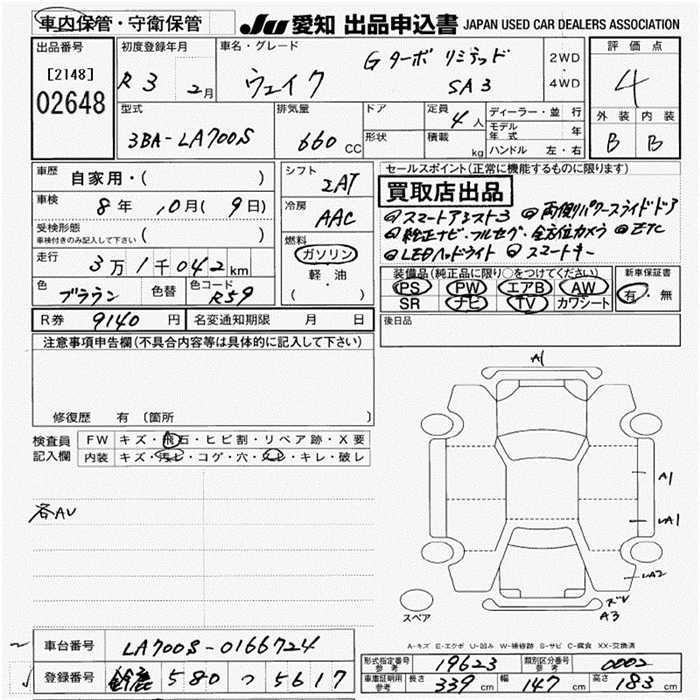 車内保管・守衛保管
JU 愛知 出品申込書 JAPAN USED CAR DEALERS ASSOCIATION
出品番号
[2148]
02648
初度登録年月
R3 2月
車名・グレード
ウェイク
Gターボ リミテッド
SA3
2WD
・
4WD
評価点
4
外装 内装
B B
型式
3BA-LA700S
排気量
660 CC
ドア
形状
定員
4人
積載
kg
ディーラー・並行
モデル年式 年
ハンドル 左・右
車歴
自家用・( )
車検
8年 10月(9日)
受検形態
車検付きのみ記入して下さい ( )
走行
3万1千042km
色
ブラウン
色替
色コード
R59
シフト
IAT
冷房
AAC
燃料
ガソリン
軽油
( ・ )
セールスポイント(正常に機能するものに限ります)
買取店出品
◎スマートアシスト3 ◎両側パワースライドドア
◎純正ナビ・フルセグ・全方位カメラ ◎ETC
◎LEDヘッドライト ◎スマートキー
装備品(純正品に限り〇をつけてください)
PS PW エアB AW
SR ナビ TV カワシート
新車保証書
有・無
R券 9140円
名変通知期限 月 日
後日品
注意事項申告欄(不具合内容等は具体的に記入して下さい)
修復歴 有 〔箇所 〕
検査員記入欄
FW キズ・飛石・ヒビ割・リペア跡・X要
内装 キズ・汚レ・コゲ・穴・スレ・キレ・破レ
各AU
A1
A1
A1
A2
A3
スペア
A-キズ E-エクボ U-凹み W-補修跡 S-サビ C-腐食 XX-交換済
車台番号 LA700S-0166724
登録番号 鈴鹿 580 つ 5617
形式指定番号 参考 19623
類別区分番号 参考 0002
車庫証明用 参考 長さ 339cm 幅 147cm 高さ 183cm